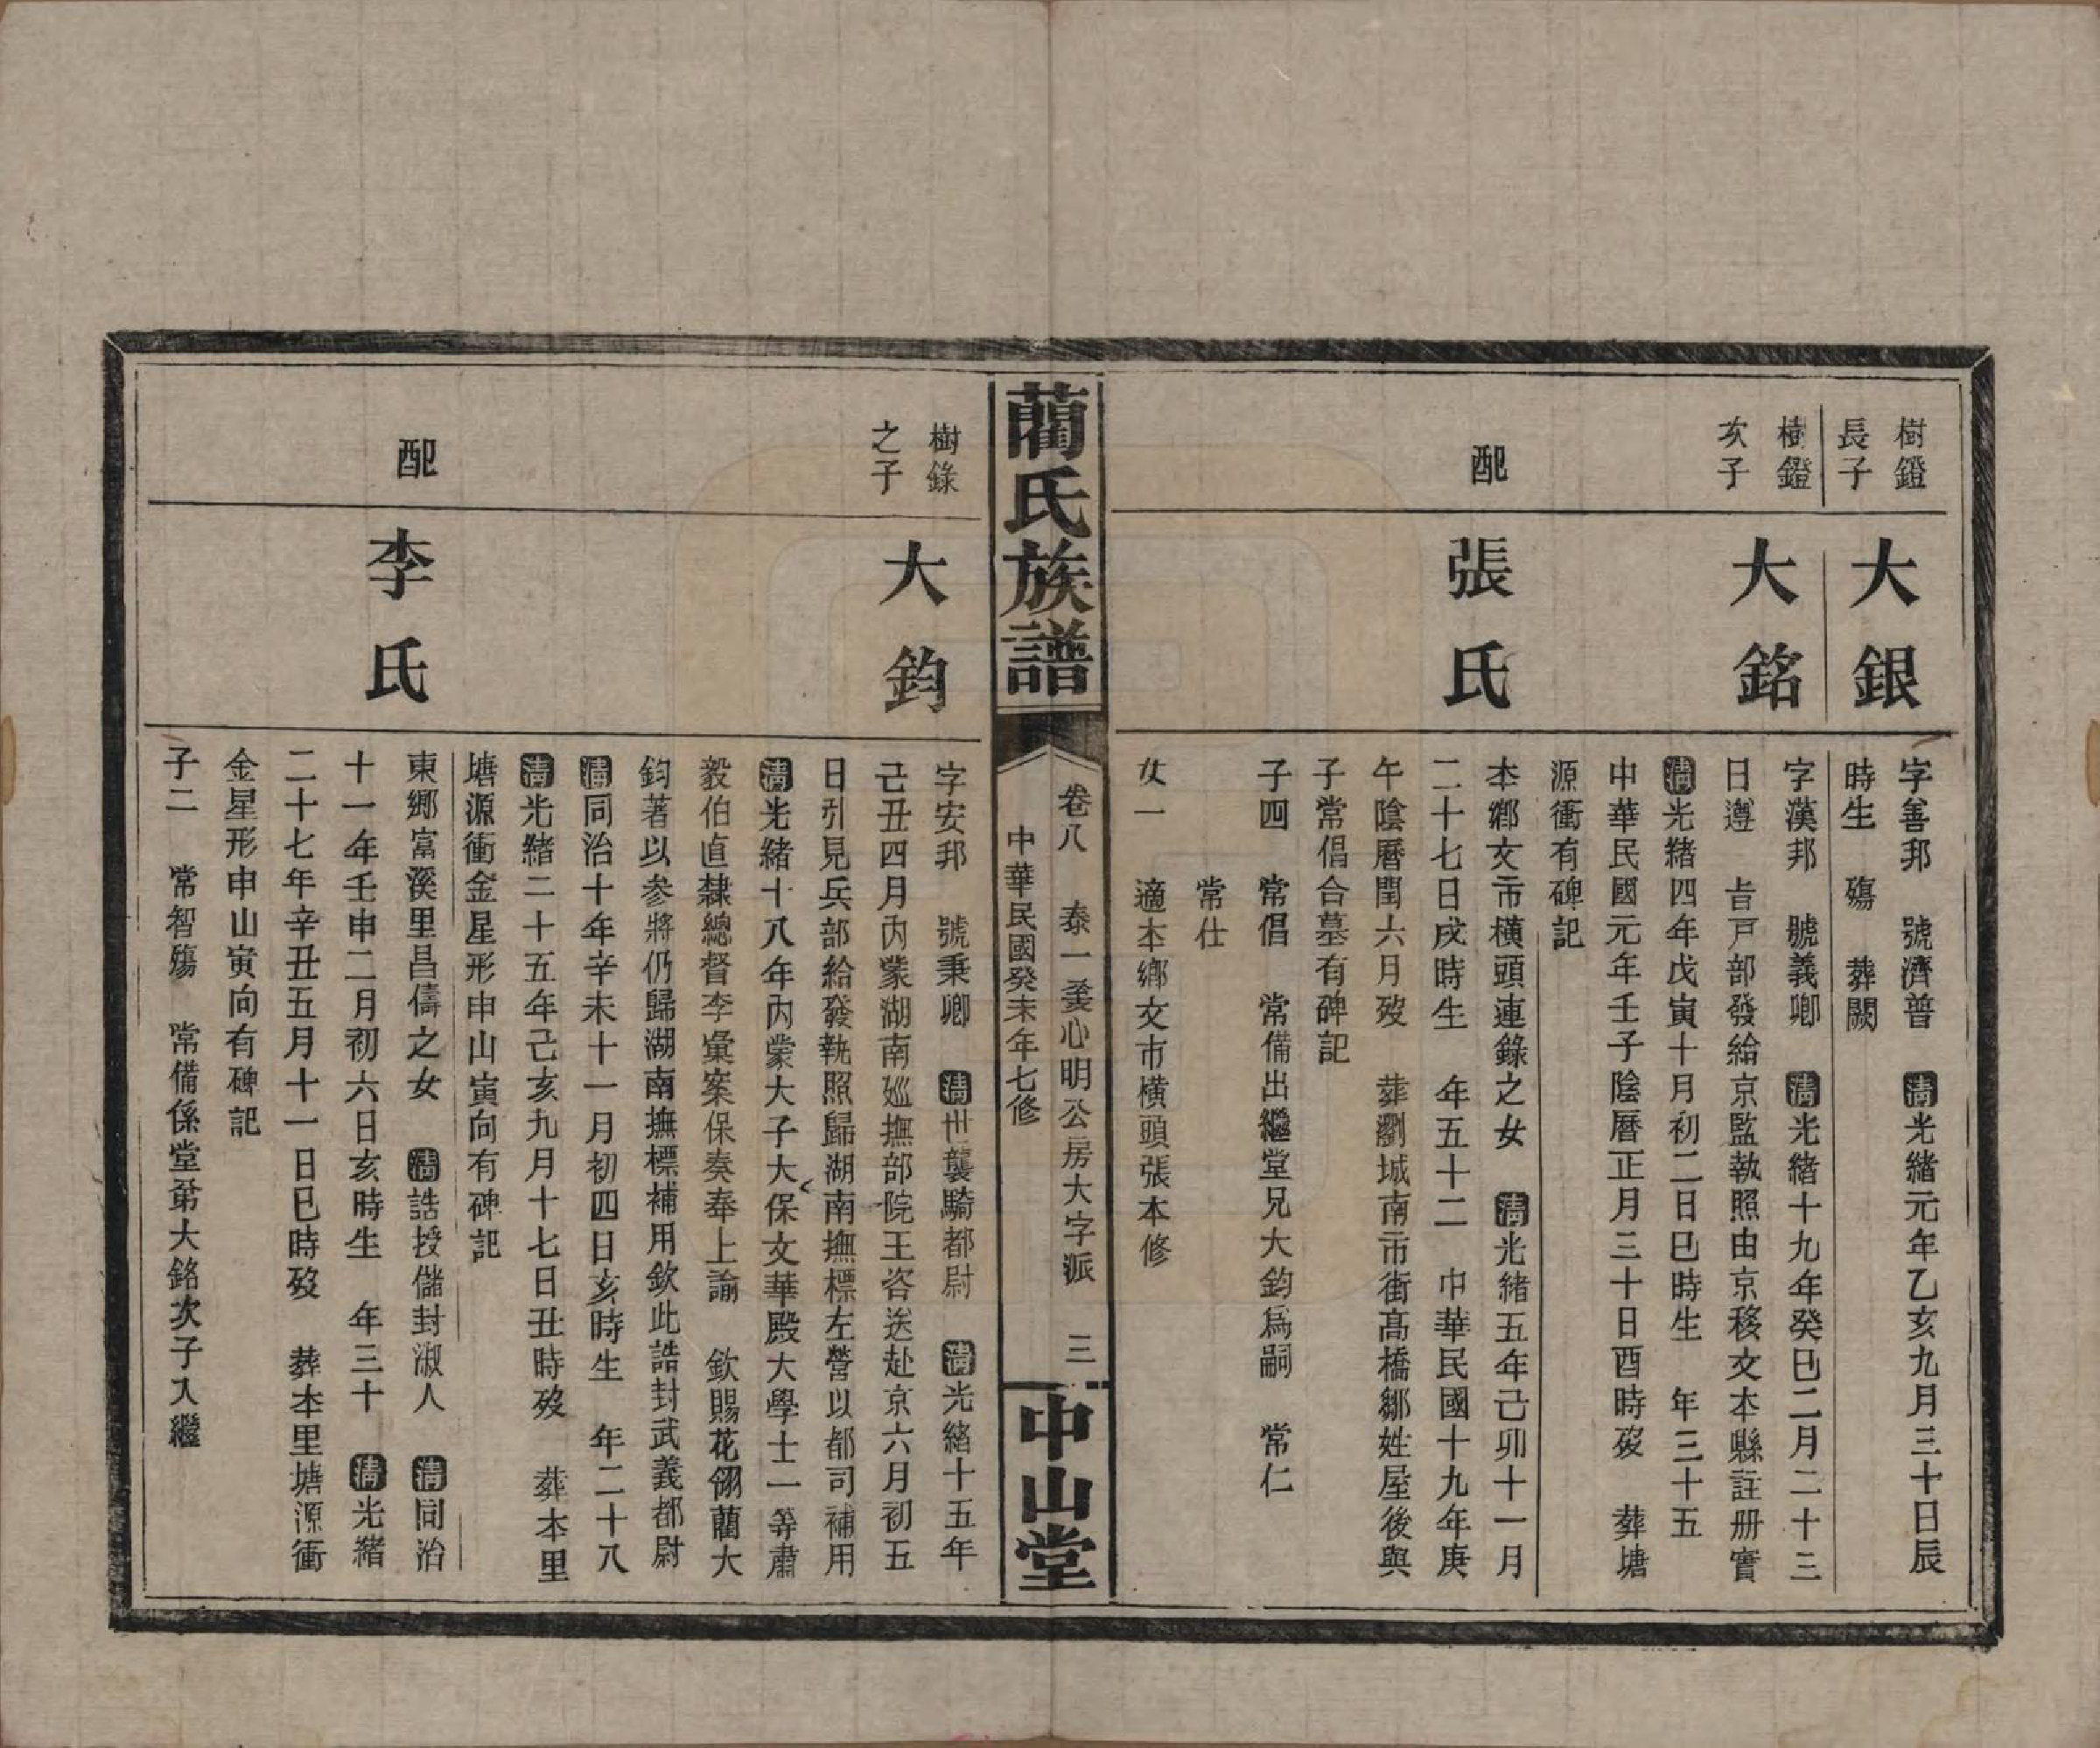 樹鐙
長子
大銀
字善邦　號濟普　清光緒元年乙亥九月三十日辰
時生　殤　葬闕
樹鐙
次子
大銘
字漢邦　號義卿　清光緒十九年癸巳二月二十三
日遵　旨戸部發給京監執照由京移文本縣註册實
清光緒四年戊寅十月初二日巳時生　年三十五
中華民國元年壬子陰曆正月三十日酉時歿　葬塘
源衝有碑記
配
張氏
本鄉文市橫頭連錄之女　清光緒五年己卯十一月
二十七日戌時生　年五十二　中華民國十九年庚
午陰曆閏六月歿　葬瀏城南市街高橋鄒姓屋後與
子常倡合墓有碑記
子四　常倡　常備出繼堂兄大鈞爲嗣　常仁
常仕
女一　適本鄉文市橫頭張本修
藺氏族譜
卷八　泰一叢心明公房大字派　三
中華民國癸未年七修
中山堂
樹錄
之子
大鈞
字安邦　號秉卿　清世襲騎都尉　清光緒十五年
己丑四月內蒙湖南廵撫部院王咨送赴京六月初五
日引見兵部給發執照歸湖南撫標左營以都司補用
清光緒十八年內蒙大子大保文華殿大學士一等肅
毅伯直隸總督李彙案保奏奉上諭　欽賜花翎藺大
鈞著以參將仍歸湖南撫標補用欽此誥封武義都尉
清同治十年辛未十一月初四日亥時生　年二十八
清光緒二十五年己亥九月十七日丑時歿　葬本里
塘源衝金星形申山寅向有碑記
配
李氏
東鄉富溪里昌儔之女　清誥授儲封淑人　清同治
十一年壬申二月初六日亥時生　年三十　清光緒
二十七年辛丑五月十一日巳時歿　葬本里塘源衝
金星形申山寅向有碑記
子二　常智殤　常備係堂弟大銘次子入繼